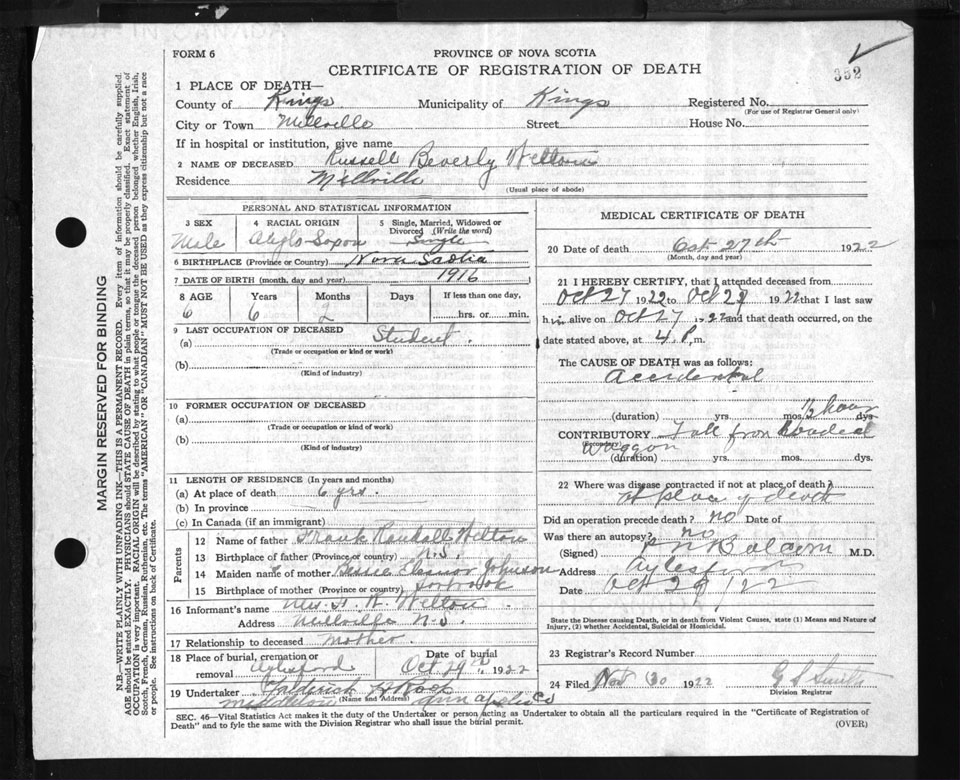 FORM 6
PROVINCE OF NOVA SCOTIA
352
CERTIFICATE OF REGISTRATION OF DEATH
1 PLACE OF DEATH—
County of Kings Municipality of Kings Registered No.
(For use of Registrar General only)
City or Town Millville Street House No.
If in hospital or institution, give name
2 NAME OF DECEASED Russell Beverly Welton
Residence Millville
(Usual place of abode)
PERSONAL AND STATISTICAL INFORMATION
3 SEX 4 RACIAL ORIGIN 5 Single, Married, Widowed or Divorced (Write the word)
Male Anglo Saxon Single
6 BIRTHPLACE (Province or Country) Nova Scotia
7 DATE OF BIRTH (month, day and year) 1916
8 AGE Years Months Days If less than one day,
6 6 2 hrs. or min.
9 LAST OCCUPATION OF DECEASED
(a) Student.
(Trade or occupation or kind or work)
(b)
(Kind of industry)
10 FORMER OCCUPATION OF DECEASED
(a)
(Trade or occupation or kind of work)
(b)
(Kind of industry)
11 LENGTH OF RESIDENCE (In years and months)
(a) At place of death 6 yrs.
(b) In province
(c) In Canada (if an immigrant)
Parents
12 Name of father Frank Randall Welton
13 Birthplace of father (Province or country) N.S.
14 Maiden name of mother Bessie Eleanor Johnson
15 Birthplace of mother (Province or country)
16 Informant's name Mrs. F. R. Welton
Address Millville N.S.
17 Relationship to deceased Mother.
18 Place of burial, cremation or removal Aylesford Date of burial Oct 29th 1922
19 Undertaker
(Name and Address)
Middleton Annapolis Co
MEDICAL CERTIFICATE OF DEATH
20 Date of death Oct 27th 1922
(Month, day and year)
21 I HEREBY CERTIFY, that I attended deceased from
Oct 27 1922 to Oct 28 1922 that I last saw
him alive on Oct 27 1922 and that death occurred, on the
date stated above, at 4 P. m.
The CAUSE OF DEATH was as follows:
Accidental
(duration) yrs. mos. 1/2 hour dys.
CONTRIBUTORY Fall from
(Secondary)
Waggon
(duration) yrs. mos. dys.
22 Where was disease contracted if not at place of death?
at place of death
Did an operation precede death? no Date of
Was there an autopsy? no
(Signed) Balcom M.D.
Address Aylesford
Date Oct 28/22
State the Disease causing Death, or in death from Violent Causes, state (1) Means and Nature of Injury, (2) whether Accidental, Suicidal or Homicidal.
23 Registrar's Record Number
24 Filed Nov 30 1922 G S Smith
Division Registrar
SEC. 46—Vital Statistics Act makes it the duty of the Undertaker or person acting as Undertaker to obtain all the particulars required in the "Certificate of Registration of
Death" and to fyle the same with the Division Registrar who shall issue the burial permit.
(OVER)
MARGIN RESERVED FOR BINDING
N.B.—WRITE PLAINLY WITH UNFADING INK—THIS IS A PERMANENT RECORD. Every item of information should be carefully supplied.
AGE should be stated EXACTLY. PHYSICIANS should STATE CAUSE OF DEATH in plain terms, so that it may be properly classified. Exact statement of
OCCUPATION is very important. RACIAL ORIGIN will be described by stating to what people or tongue the deceased person belonged whether English, Irish,
Scotch, French, German, Russian, Ruthenian, etc. The terms "AMERICAN" OR "CANADIAN" MUST NOT BE USED as they express citizenship but not a race
or people. See instructions on back of Certificate.